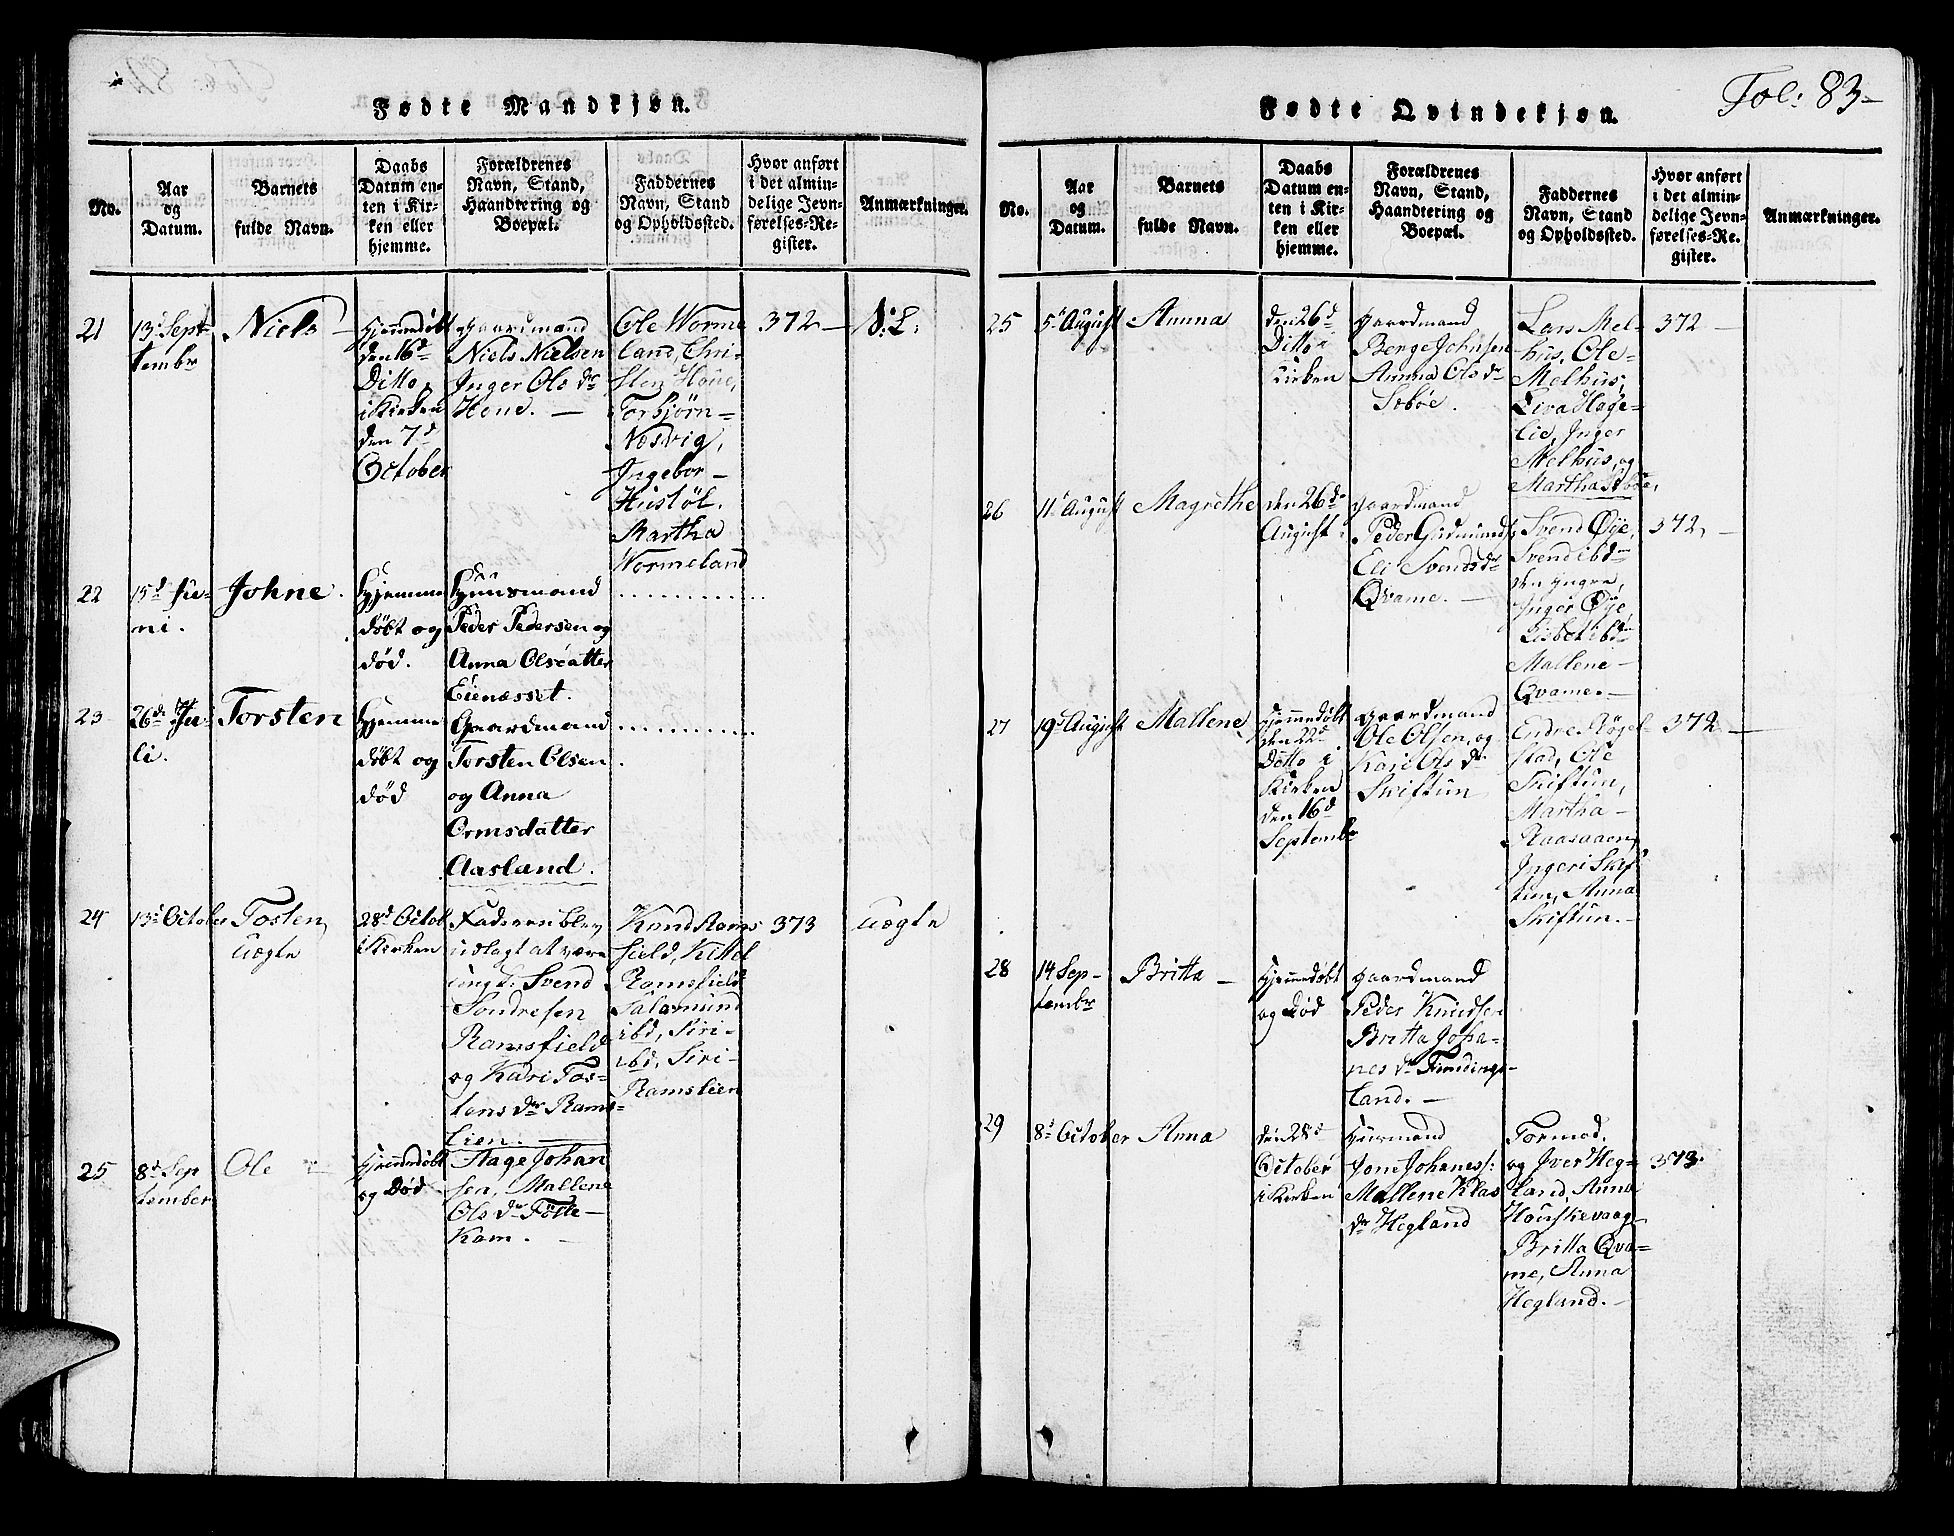 Fol: 83
Fødte Mandkjøn.
No.
Aar
og
Datum.
Barnets
fulde Navn.
Daabs
Datum en-
ten i Kir-
ken eller
hjemme.
Forældrenes
Navn, Stand,
Haandtering og
Boepæl.
Faddernes
Navn, Stand
og Opholdssted.
Hvor anført
i det almin-
delige Jevn-
førelses-Re-
gister.
Anmærkninger.
21
13de Sept-
tembr
Niels
Hjemmedøbt
den 16d
Ditto,
i Kirken
den 7d
October
Gaardmand
Niels Nielsen
Inger Ols dr
Houe. —
Ole Worme
land, Chri-
sten Houe,
Torbjørn
Nesvig,
Ingebor
Hustöl.
Martha
Wormeland
372
22
15d Ju-
ni.
Johne.
Hjemme
döbt og
död.
Huusmand
Peder Pedersen og
Anna Olsdatter
Eienæsset.
23
26d Ju-
li.
Torsten
Hjemme
döbt og
död
Gaardmand
Torsten Olsen
og Anna
Ormsdatter
Aasland.
24
13d October
Tosten
uægte
28d Octob
i Kirken
Faderen blev
udlagt at være
ungk. Svend
Sondresen
Ramsfield
og Kari Tos-
tens dr Rams-
lien.
Knud Rams
field, Kittel
Ramsfield
Salamund
ibd, Siri
ibd, Siri
Ramslien
373
uægte
25
8d Sep
tember
Ole
Hjemmedøbt
og Död
Aage Johan
sen, Mallene
Ols dr
Kam.
Fødte Qvindekjøn.
No.
Aar
og
Datum.
Barnets
fulde Navn.
Daabs
Datum en-
ten i Kir-
ken eller
hjemme.
Forældrenes
Navn, Stand,
Haandtering og
Boepæl.
Faddernes
Navn, Stand
og Opholdssted.
Hvor anført
i det almin-
delige Jevn-
førelses-Re.
gister.
Anmærkninger.
25
5t August
Anna
den 26d
Ditto i
Kirken
Gaardmand
Berge Johnsen
Anna Ols dr
Soböe.
Lars Mel-
hus, Ole
Melhus,
Liva Hage-
lie, Inger
Melhus, og
Martha Soböe,
372
26
11t August
Magrethe
den 26de
August
Gaardmand
Peder Gudmunds
Eli Svends dr
Qvame.
Svend Øÿe,
Svend ibd
den yngre,
Inger Øÿe,
Lisbet ibd
Mallene
Qvame.
372,
27
19d August
Mallene
Hjemmedøbt
den 22d
Ditto i
Kirken
den 16d
Septembr
Gaardmand
Ole Olsen, og
Kari Ols dr
Skiftun
Endre Høgel
stad, Ole
Skiftun,
Martha
Raasaaen,
Ingeri Skif
tun, Anna
Skiftun.
372
28
14 Sep-
tembr
Britta
Hjemmedøbt
og Död
Gaardmand
Peder Knudsen
Britta Joha-
nes dr Fundings-
land.
29
8d October
Anna
den 28d
October
i Kirken
Huusmand
Jone Johaness:
Mallene Klas
dr Hegland
Tormod.
og Iver Heg-
land, Anna
Houskevaag
Britta Qva-
me, Anna
Hegland.
373.